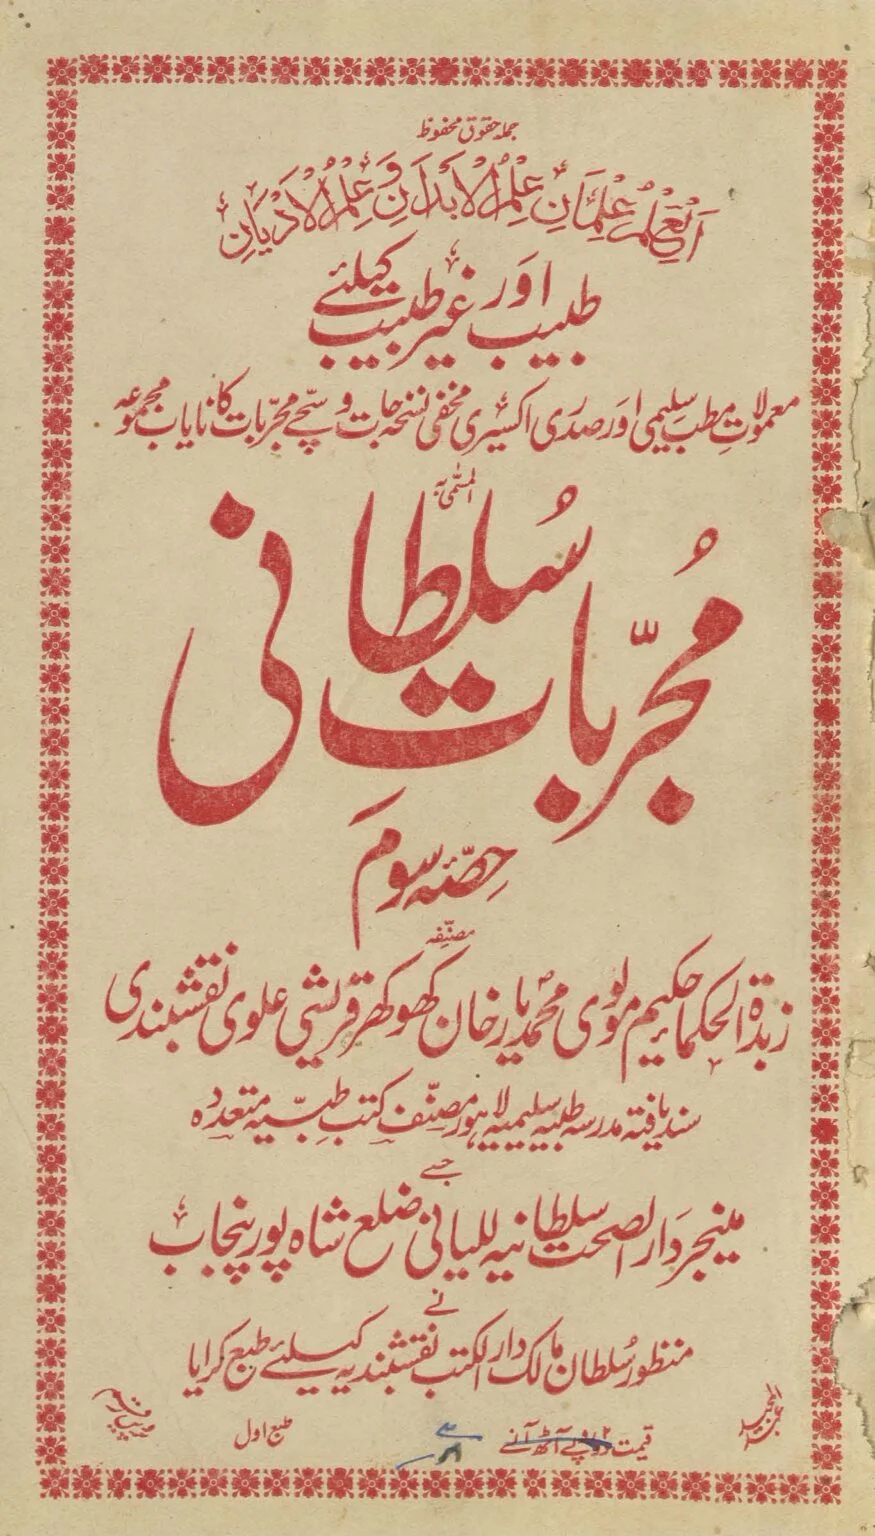 جملہ حقوق محفوظ
اَلعِلمُ عِلمَانِ عِلمُ الاَبدَانِ وَ عِلمُ الاَديَانِ
طبیب اور غیر طبیب کیلئے
معمولاتِ مطب سلیمی اور صدری اکسیری مخفی نسخہ جات و سچے مجربات کا نایاب مجموعہ
المسمّٰی بہ
مُجرّباتِ سُلطانی
حصّہ سوم
مصنّفہ
زبدۃ الحکما حکیم مولوی محمد یار خان کھوکھر قریشی علوی نقشبندی
سند یافتہ مدرسہ طبیہ سلیمیہ لاہور مصنّف کتب طبّیہ متعددہ
جسے
مینیجر دار الصحت سلطانیہ للیانی ضلع شاہ پور پنجاب
نے
منظور سُلطان مالک دار الکتب نقشبندیہ کیلئے طبع کرایا
عبد المجید
قیمت دو روپے آٹھ آنے
طبع اول